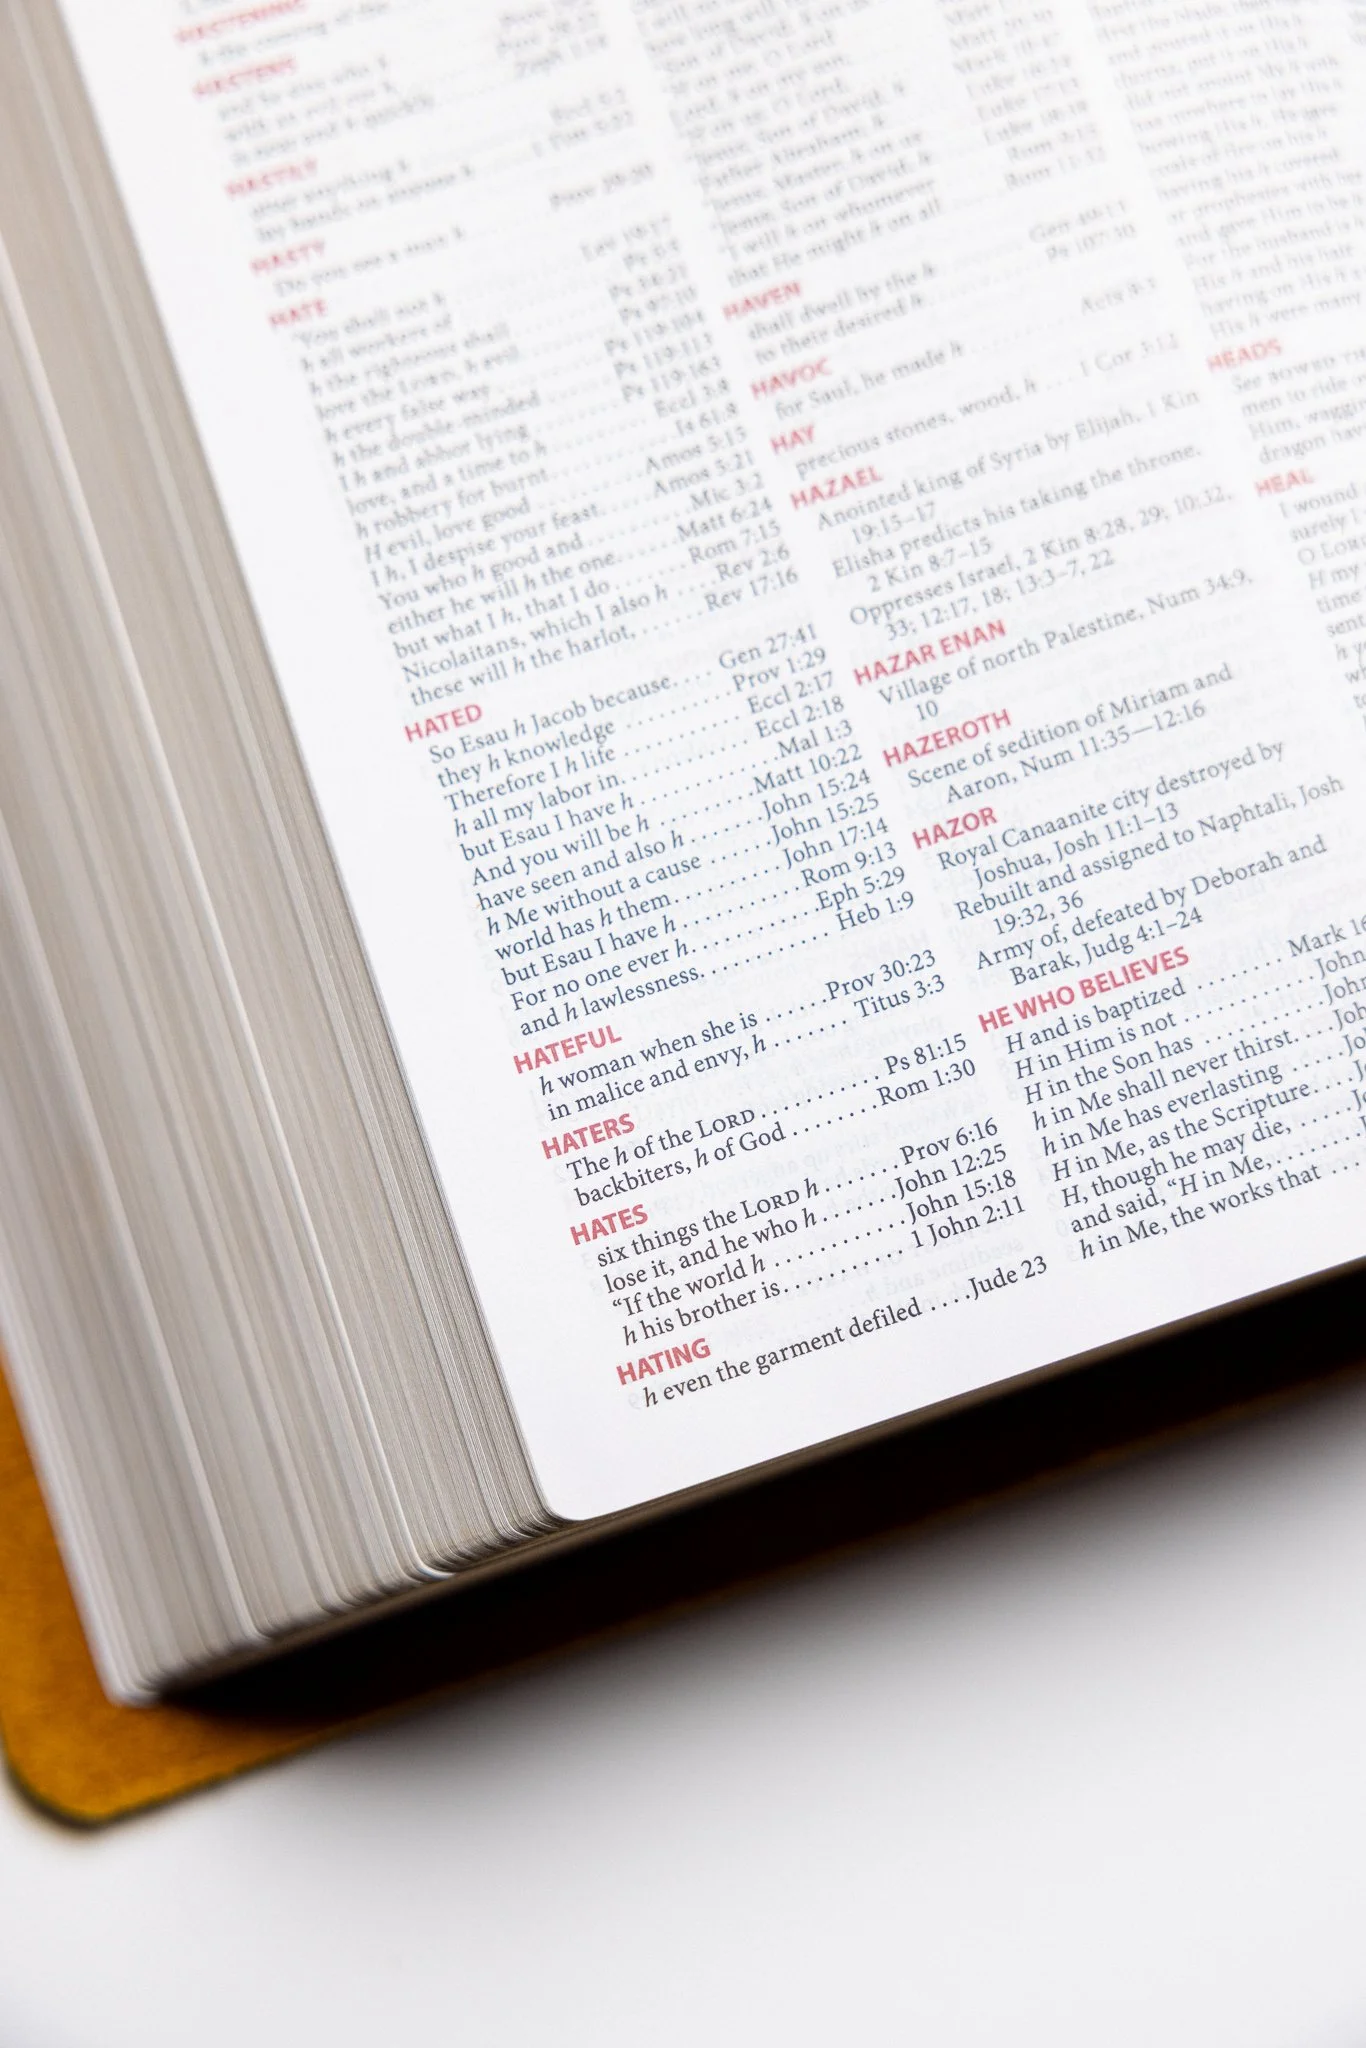 HASTENS
HASTILY
after anything h
lay hands on anyone h
HASTY
Do you see a man h
Prov 29:20
HATE
'You shall not h . . . . . . . Lev 19:17
h all workers of . . . . . . . Ps 5:5
h the righteous shall . . . . . . . Ps 34:21
love the LORD, h evil . . . . . . . Ps 97:10
h every false way . . . . . . . Ps 119:104
h the double-minded . . . . . . . Ps 119:113
I h and abhor lying . . . . . . . Ps 119:163
love, and a time to h . . . . . . . Eccl 3:8
h robbery for burnt . . . . . . . Is 61:8
H evil, love good . . . . . . . Amos 5:15
I h, I despise your feast . . . . . . . Amos 5:21
You who h good and . . . . . . . Mic 3:2
either he will h the one . . . . . . . Matt 6:24
but what I h, that I do . . . . . . . Rom 7:15
Nicolaitans, which I also h . . . . Rev 2:6
these will h the harlot, . . . . . . . Rev 17:16
HATED
So Esau h Jacob because . . . . Gen 27:41
they h knowledge . . . . . . . . . . Prov 1:29
Therefore I h life . . . . . . . . . . Eccl 2:17
h all my labor in . . . . . . . . . . Eccl 2:18
but Esau I have h . . . . . . . . . . Mal 1:3
And you will be h . . . . . . . . . . Matt 10:22
have seen and also h . . . . . . . John 15:24
h Me without a cause . . . . . . John 15:25
world has h them . . . . . . . . . John 17:14
but Esau I have h . . . . . . . . . . Rom 9:13
For no one ever h . . . . . . . . . . Eph 5:29
and h lawlessness . . . . . . . . . . Heb 1:9
HATEFUL
h woman when she is . . . . . . Prov 30:23
in malice and envy, h . . . . . . . Titus 3:3
HATERS
The h of the LORD . . . . . . . . . . Ps 81:15
backbiters, h of God . . . . . . . . Rom 1:30
HATES
six things the LORD h . . . . . . . Prov 6:16
lose it, and he who h . . . . . . . John 12:25
“If the world h . . . . . . . . . . . John 15:18
h his brother is . . . . . . . . . . . 1 John 2:11
HATING
h even the garment defiled . . . . Jude 23
Father Abraham, h
Jesus, Master, h on us
Son of David, h
Jesus, Son of David, h
“I will h on whomever . . . . . . . Rom 9:15
that He might h on all . . . . . . . Rom 11:32
HAVEN
shall dwell by the h . . . . . . . Gen 49:13
to their desired h . . . . . . . Ps 107:30
HAVOC
for Saul, he made h . . . . . . . Acts 8:3
HAY
precious stones, wood, h . . . 1 Cor 3:12
HAZAEL
Anointed king of Syria by Elijah, 1 Kin
19:15–17
Elisha predicts his taking the throne,
2 Kin 8:7–15
Oppresses Israel, 2 Kin 8:28, 29; 10:32,
33; 12:17, 18; 13:3–7, 22
HAZAR ENAN
Village of north Palestine, Num 34:9,
10
HAZEROTH
Scene of sedition of Miriam and
Aaron, Num 11:35—12:16
HAZOR
Royal Canaanite city destroyed by
Joshua, Josh 11:1–13
Rebuilt and assigned to Naphtali, Josh
19:32, 36
Army of, defeated by Deborah and
Barak, Judg 4:1–24
HE WHO BELIEVES
H and is baptized . . . . . . . . Mark 16
H in Him is not . . . . . . . . . . John
H in the Son has . . . . . . . . . . John
h in Me shall never thirst . . . . Joh
h in Me has everlasting . . . . . Jo
H in Me, as the Scripture . . . . J
H, though he may die, . . . . . . J
and said, “H in Me, . . . . . . . J
h in Me, the works that . . . .
having His h covered
or prophesies with her
and gave Him to be h
For the husband is h
His h and his hair
having on His h a
His h were many
HEADS
men to ride
Him, wagging
dragon hav
HEAL
I wound
surely I
O LORD
H my
time
sent
h y